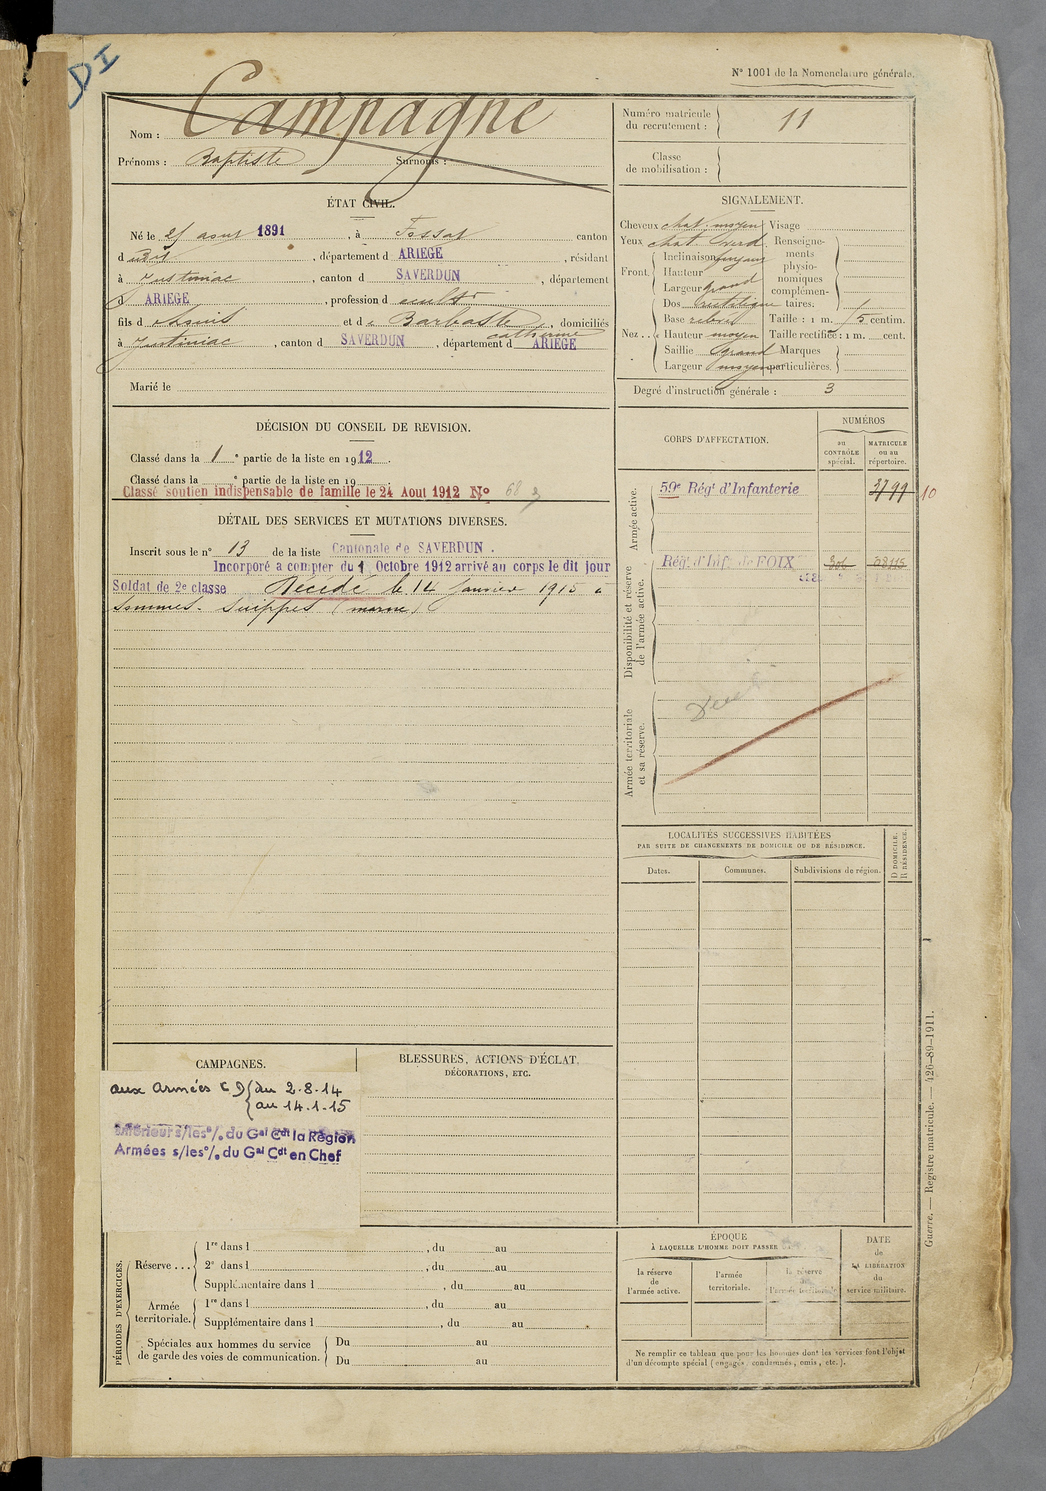 DI
N° 1001 de la Nomenclature générale.
Nom : Campagne
Prénoms : Baptiste Surnoms :
Numéro matricule du recrutement : 11
Classe de mobilisation :
ÉTAT CIVIL.
Né le 25 aout 1891, à Fossat canton
d , département d ARIEGE , résidant
à Justiniac , canton d SAVERDUN , département
d ARIEGE , profession d cultr
fils d et de Barbaste catherine , domiciliés
à Justiniac , canton d SAVERDUN , département d ARIEGE
Marié le
SIGNALEMENT.
Cheveux chat. moyen Visage
Yeux chat verd Renseignements physionomiques complémentaires:
Front. Inclinaison fuyant
Hauteur
Largeur grand
Nez .. Dos rectiligne
Base relevé Taille : 1 m. 5 centim.
Hauteur moyen Taille rectifiée : 1 m. cent.
Saillie grand Marques
Largeur moyen particulières.
Degré d'instruction générale : 3
DÉCISION DU CONSEIL DE REVISION.
Classé dans la 1 e partie de la liste en 1912.
Classé dans la e partie de la liste en 19
Classé soutien indispensable de famille le 24 Aout 1912 No 68
DÉTAIL DES SERVICES ET MUTATIONS DIVERSES.
Inscrit sous le n° 13 de la liste Cantonale de SAVERDUN.
Incorporé a compter du 1 Octobre 1912 arrivé au corps le dit jour
Soldat de 2e classe Décédé le 14 Janvier 1915 à
Sommes-Suippes (marne)
CORPS D'AFFECTATION.
NUMÉROS
au CONTRÔLE spécial.
MATRICULE ou au répertoire.
Armée active.
59e Régt d'Infanterie 3799 10
Disponibilité et réserve de l'armée active.
Régt d'Inf. de FOIX
Armée territoriale et sa réserve.
LOCALITÉS SUCCESSIVES HABITÉES
PAR SUITE DE CHANGEMENTS DE DOMICILE OU DE RÉSIDENCE.
Dates. Communes. Subdivisions de région. D DOMICILE. R RÉSIDENCE.
CAMPAGNES.
aux armées C D { du 2.8.14
au 14.1.15
Intérieur s/les o/. du Gal Cdt la Région
Armées s/les o/. du Gal Cdt en Chef
BLESSURES, ACTIONS D'ÉCLAT,
DÉCORATIONS, ETC.
PÉRIODES D'EXERCICES.
Réserve ... 1re dans l , du au
2e dans l , du au
Supplémentaire dans l , du au
Armée territoriale. 1re dans l , du au
Supplémentaire dans l , du au
Spéciales aux hommes du service de garde des voies de communication. Du au
Du au
ÉPOQUE
À LAQUELLE L'HOMME DOIT PASSER
la réserve de l'armée active.
l'armée territoriale.
la réserve de l'armée territoriale
DATE de LA LIBÉRATION du service militaire.
Ne remplir ce tableau que pour les hommes dont les services font l'objet
d'un décompte spécial (engagés, condamnés, omis, etc.).
Guerre. — Registre matricule. — 426-89-1911.